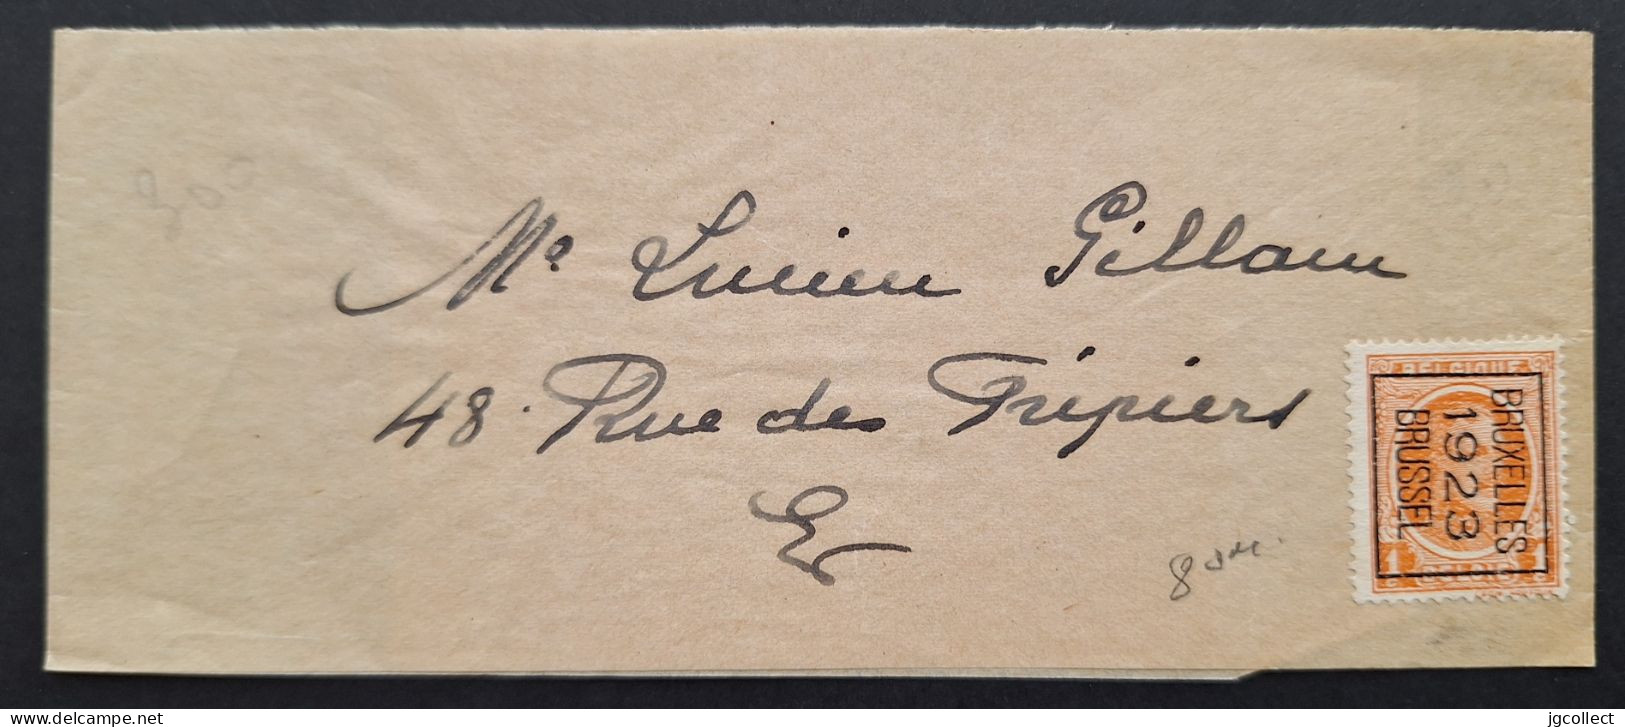 Mr Lucien Gillain
48. Rue des Fripiers
E/V
BELGIQUE
BRUXELLES
1923
BRUSSEL
1 1
BELGIË
300
delcampe.net
jgcollect